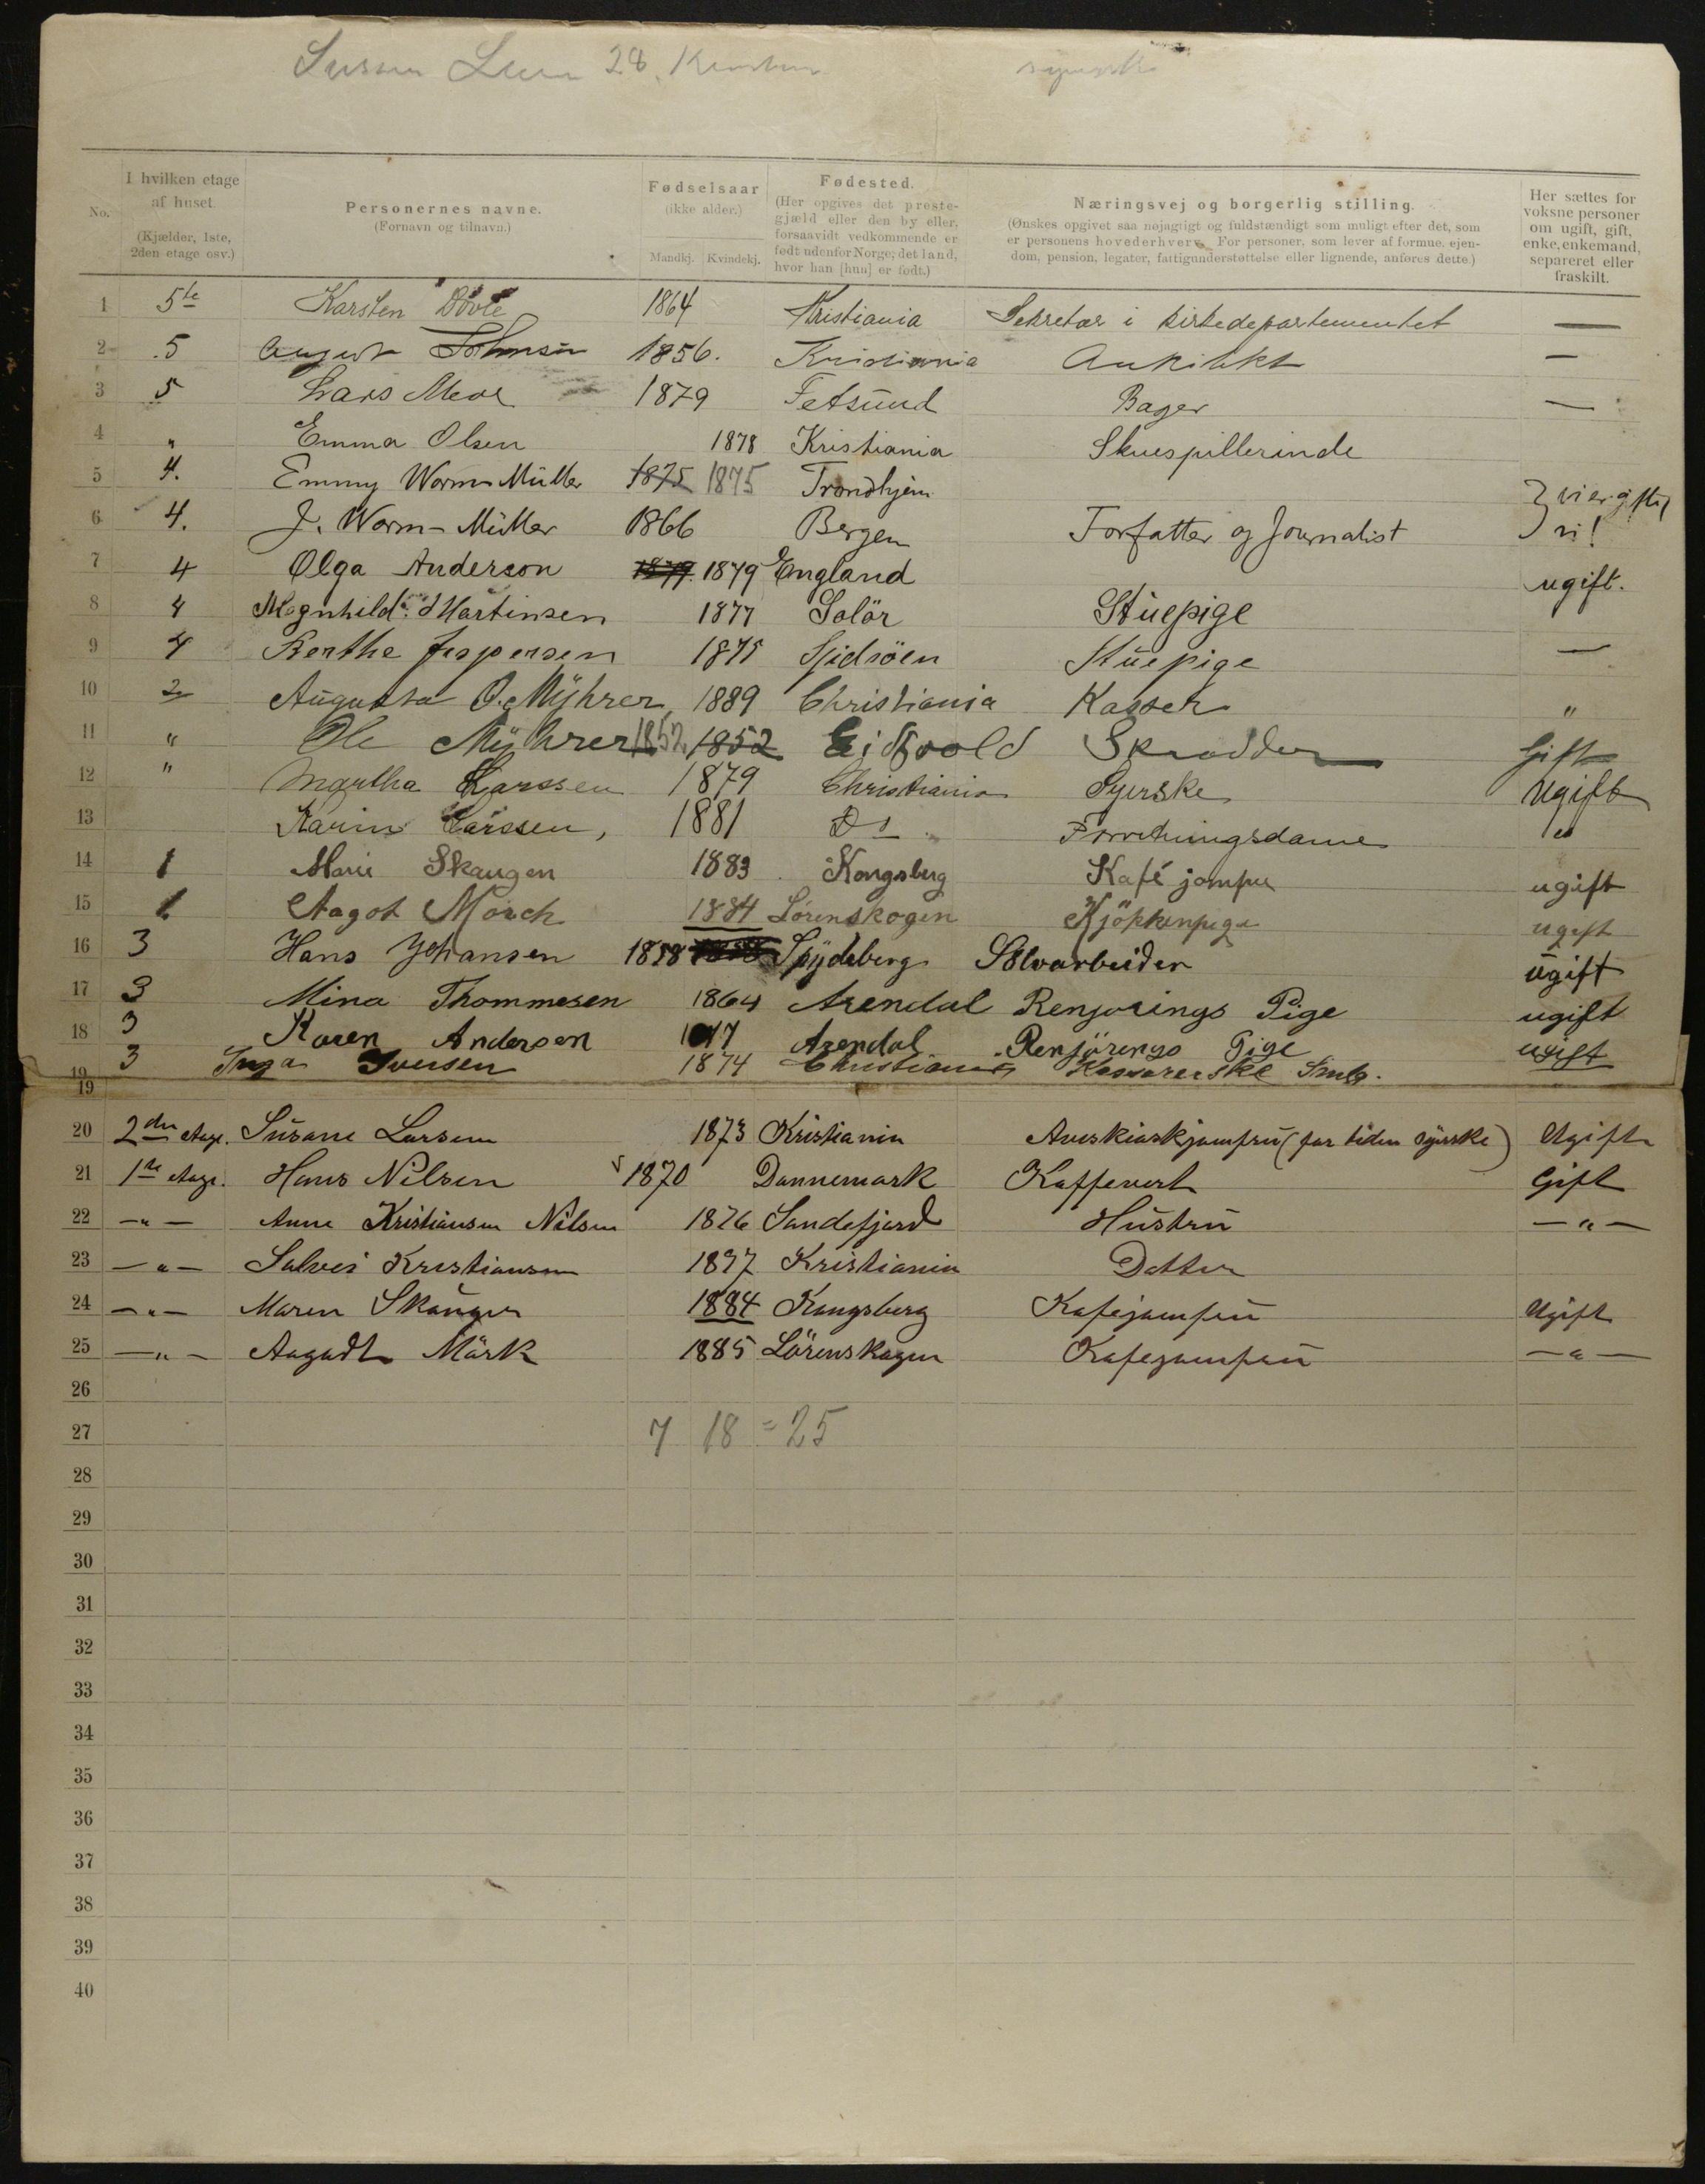 28
I hvilken etage af huset. (Kjælder, 1ste, 2den etage osv.)
No.
Personernes navne. (Fornavn og tilnavn.)
Fødselsaar (ikke alder.) Mandkj. Kvindekj.
Fødested. (Her opgives det prestegjæld eller den by eller, forsaavidt vedkommende er født udenfor Norge, det land, hvor han [hun] er født.)
Næringsvej og borgerlig stilling. (Ønskes opgivet saa nøjagtigt og fuldstændigt som muligt efter det, som er personens hovederhverv. For personer, som lever af formue, ejendom, pension, legater, fattigunderstøttelse eller lignende, anføres dette.)
Her sættes for voksne personer om ugift, gift, enke, enkemand, separeret eller fraskilt.
1 5te Karsten 1864 Kristiania Sekretær i kirkedepartementet —
2 5 August 1856. Kristiania Arkitekt —
3 5 Lars 1879 Fetsund Bager —
4 " Emma Olsen 1878 Kristiania Skuespillerinde
5 4. Emmy Worm-Müller 1875 1875 Trondhjem
6 4. J. Worm-Müller 1866 Bergen Forfatter og Journalist } vi er gifte vi!
7 4 Olga Anderson 1879 1879 England ugift.
8 4 Magnhild Martinsen 1877 Solör Stuepige
9 4 Berthe Jespersen 1875 Stuepige —
10 2 Augusta O. Mÿhrer 1889 Christiania Kasser "
11 " Ole Mÿhrer 1852. 1852 Eidsvold Skrædder Gift
12 " Martha Larssen 1879 Christiania Syerske Ugift
13 Karin Larssen, 1881 Do Forretningsdame "
14 1 Marie Skaugen 1883 Kongsberg Kafé jomfru ugift
15 1 Aagot Mörch 1884 Lörenskogen Kjökkenpige ugift
16 3 Hans Johansen 1858 Spÿdeberg Sölvarbeider ugift
17 3 Mina Thommesen 1864 Arendal Renjørings Pige ugift
18 3 Karen Andersen Arendal Renjörings Pige ugift
19 3 Inga Iversen 1874 Christiania
19
20 2den Etage. Susane Larsen 1873 Kristiania (for tiden syerske) Ugift
21 1ste Etage. Hans Nilsen 1870 Dannemark Kaffevert Gift
22 —"— Anne Kristiansen Nilsen 1876 Sandefjord Hustru —"—
23 —"— Solvei Kristiansen 1897 Kristiania Datter
24 —"— Maren Skaugen 1884 Kongsberg Kafejomfru Ugift
25 —"— Aagadt Mörk 1885 Lörenskogen Kafejomfru —"—
26
27 7 18 = 25
28
29
30
31
32
33
34
35
36
37
38
39
40